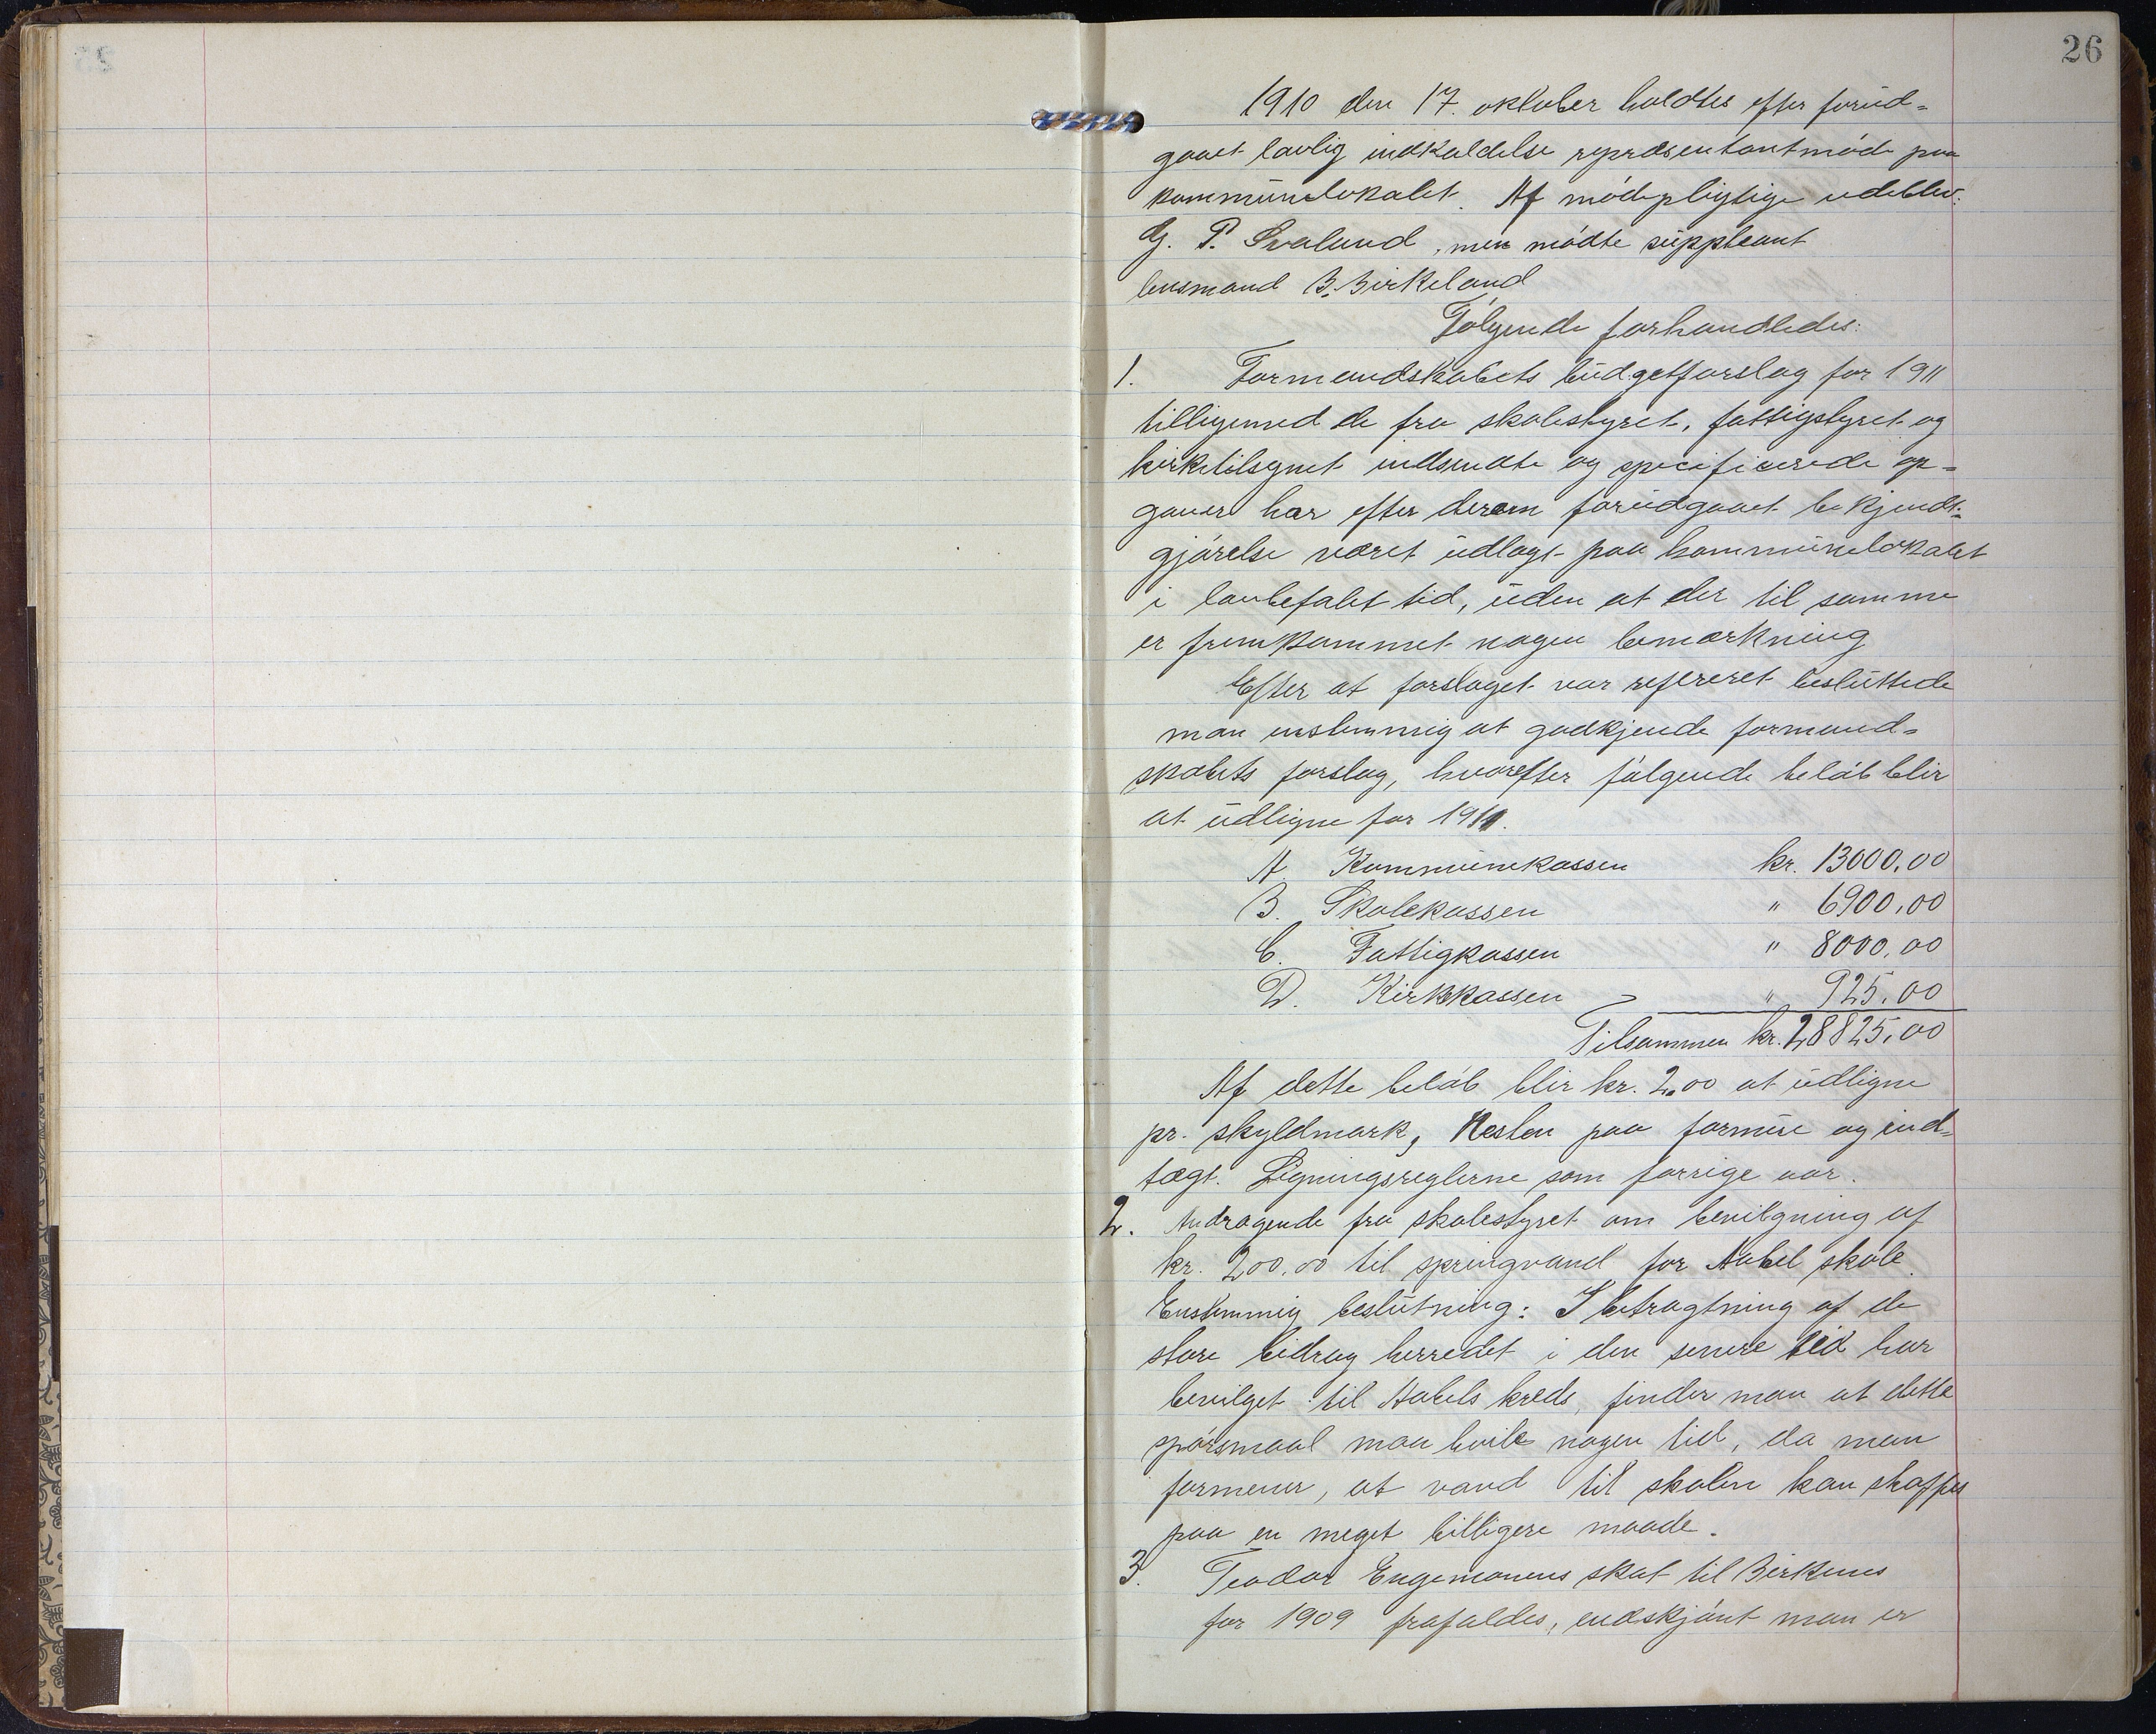 26
1910 den 17. oktober holdtes efter forud-
gaaet lovlig indkaldelse repræsentantmøde paa
kommunelokalet. Af mødepligtige udeblev:
G. P. Svaland, men mødte suppleant
lensmand B. Birkeland
Følgende forhandledes:
1. Formandskabets budgetforslag for 1911
tilligemed de fra skolestyret, fattigstyret og
kirketilsynet indsendte og specificerede op-
gaver har efter derom forudgaaet bekjendt-
gjørelse været udlagt paa kommunelokalet
i lovbefalet tid, uden at der til samme
er fremkommet nogen bemærkning
Efter at forslaget var refereret besluttede
man enstemmig at godkjende formand-
skabets forslag, hvorefter følgende beløb blir
at udligne for 1911.
A. Kommunekassen kr. 13000,00
B. Skolekassen " 6900,00
C. Fattigkassen " 8000,00
D. Kirkekassen " 925,00
Tilsammen kr. 28825,00
Af dette beløb blir kr. 2.00 at udligne
pr. skyldmark, Resten paa formue og ind-
tægt. Ligningsreglerne som forrige aar.
2. Andragende fra skolestyret om bevilgning af
kr. 200.00 til springvand for Aabel skole.
Enstemmig beslutning: I betragtning af de
store bidrag herredet i den senere tid har
bevilget til Aabels kreds, finder man at dette
spørsmaal maa hvile nogen tid, da man
formener, at vand til skolen kan skaffes
paa en meget billigere maade.
3. Teodor Engemoens skat til Birkenes
for 1909 frafaldes, endskjønt man er